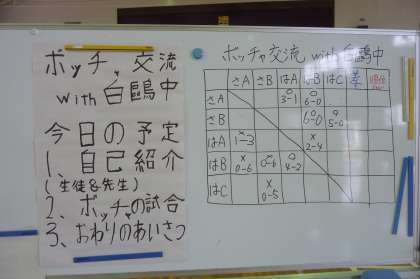 ボッチャ 交流
with 白鷗中
今日の予定
1、自己紹介
(生徒&先生)
2、ボッチャの試合
3、おわりのあいさつ
ボッチャ交流 with 白鷗中
さA さB はA はB はC 差 順位
さA ○ 3-1 ○ 6-0
さB ○ 6-0 ○ 5-0
はA × 1-3 × 2-4
はB × 0-6 × 0-6 ○ 4-2
はC × 0-5